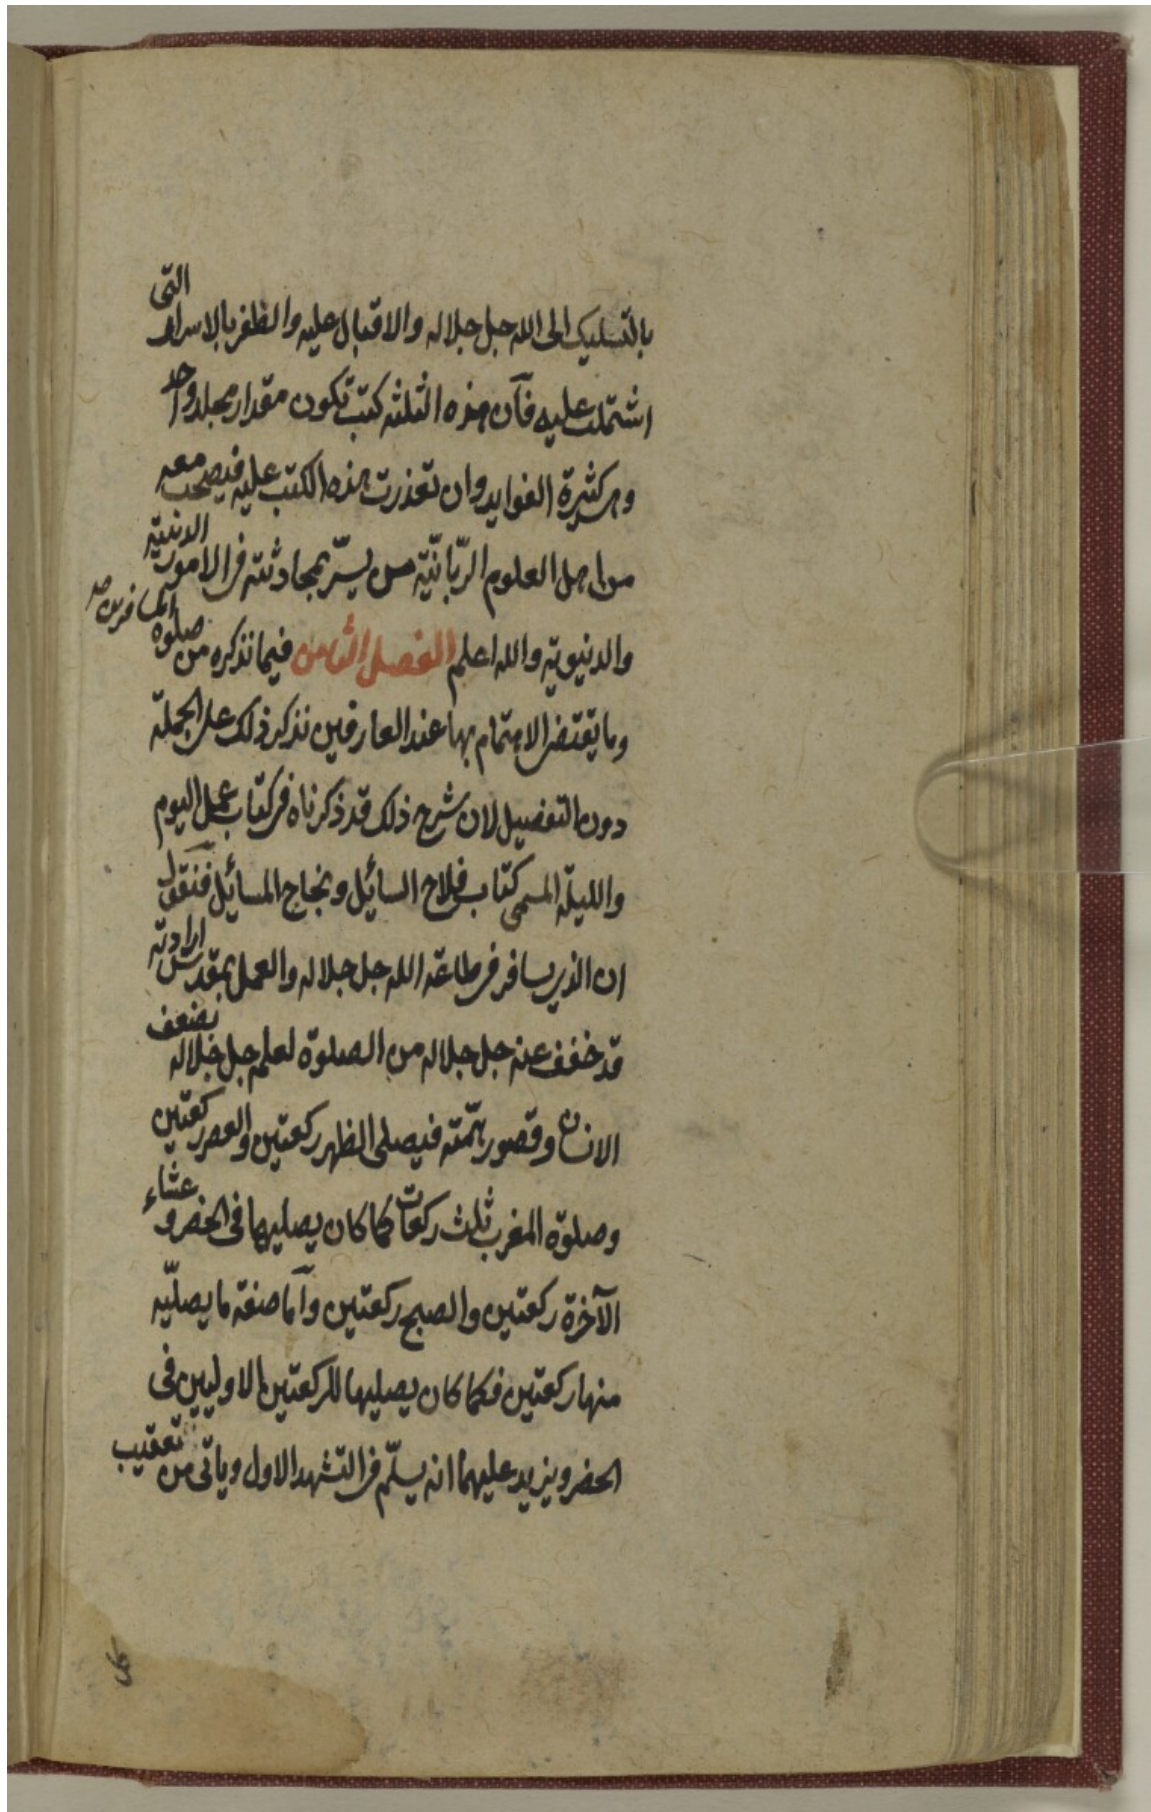 بالتسليك الى الله جل جلاله والاقبال عليه والظفر بالاسرار التى
اشتملت عليه فآن هذه الثلثه كتب تكون مقدار مجلد واحد
وهى كثيرة الفوايد وان تعذرت هذه الكتب عليه فيصحب معه
من اهل العلوم الربّانيّة من يسرّ بمحادثته فى الامور الدينيّه
والدنيويّه والله اعلم الفصل الثامن فيما نذكره من صلوة المسافرين صح
وما يقتضى الاهتمام بها عند العارفين نذكر ذلك على الجملة
دون التفضيل لان شرح ذلك قد ذكرناه فى كتاب عمل اليوم
والليلة المسمى كتاب فلاح السائل ونجاح المسائل فنقول
ان الذى يسافر فى طاعة الله جل جلاله والعمل بمقدس ارادته
قد خفف عنه جل جلاله من الصلوة لعلم جل جلاله بضعف
الانسان وقصور همّته فيصلى الظهر ركعتين والعصر ركعتين
وصلوة المغرب ثلث ركعات كما كان يصليها فى الحضر و عشاء
الآخرة ركعتين والصبح ركعتين وآما صفة ما يصلّيه
منها ركعتين فكما كان يصليها للركعتين الاوليين فى
الحضر ويزيد عليهما انه يسلّم فى التشهد الاول وياتى من تعقيب